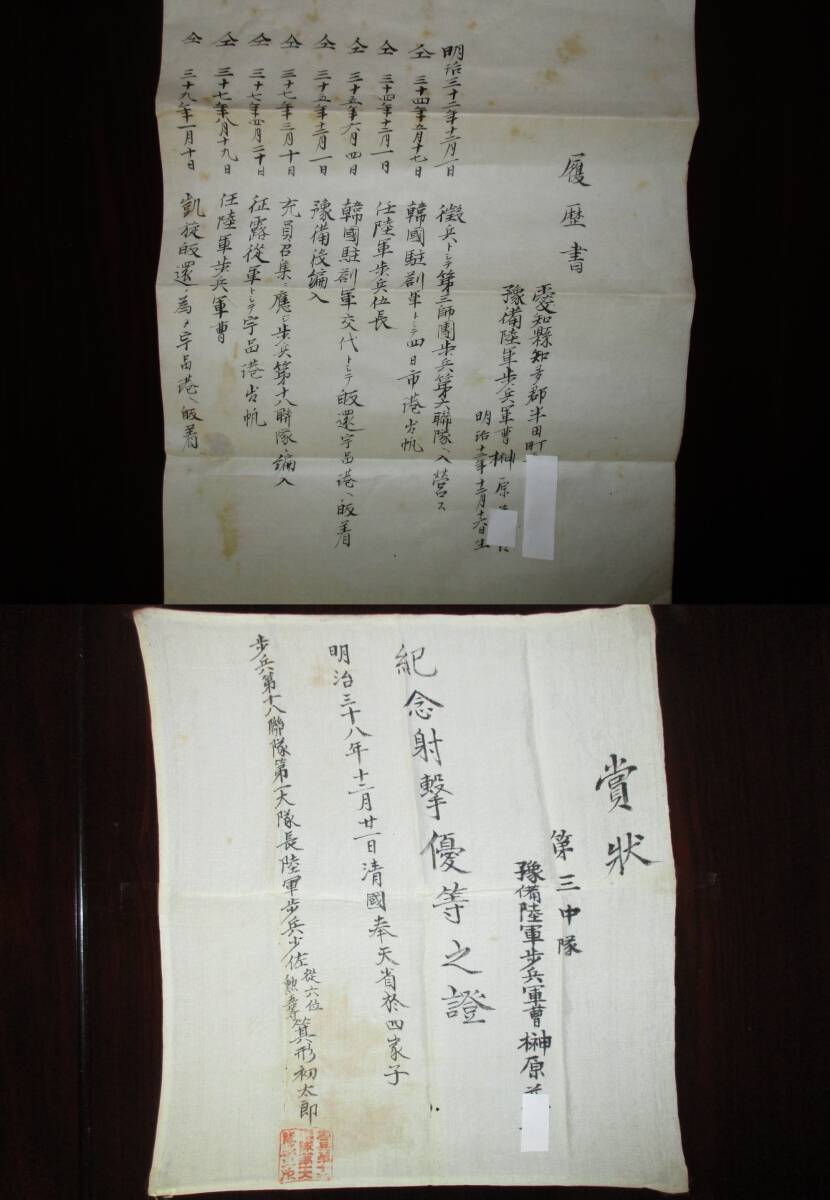 履歴書
愛知縣知多郡半田町
豫備陸軍歩兵軍曹 榊原
明治十二年十二月十六日生
明治三十二年十二月一日 徴兵トシテ第三師團歩兵第六聯隊ヘ入營ス
仝 三十四年五月十七日 韓國駐劄軍トシテ四日市港出帆
仝 三十四年十二月一日 任陸軍歩兵伍長
仝 三十五年六月四日 韓國駐劄軍交代トシテ皈還宇品港ヘ皈着
仝 三十五年十二月一日 豫備役編入
仝 三十七年三月十日 充員召集ニ應ジ歩兵第十八聯隊ヘ編入
仝 三十七年四月二十日 征露從軍トシテ宇品港出帆
仝 三十七年八月十九日 任陸軍歩兵軍曹
仝 三十九年一月十日 凱旋皈還ノ為メ宇品港ヘ皈着
賞狀
第三中隊
豫備陸軍歩兵軍曹 榊原
紀念射撃優等之證
明治三十八年十二月廿一日清國奉天省於四家子
歩兵第十八聯隊第一大隊長陸軍歩兵少佐 從六位 勲 箕形初太郎